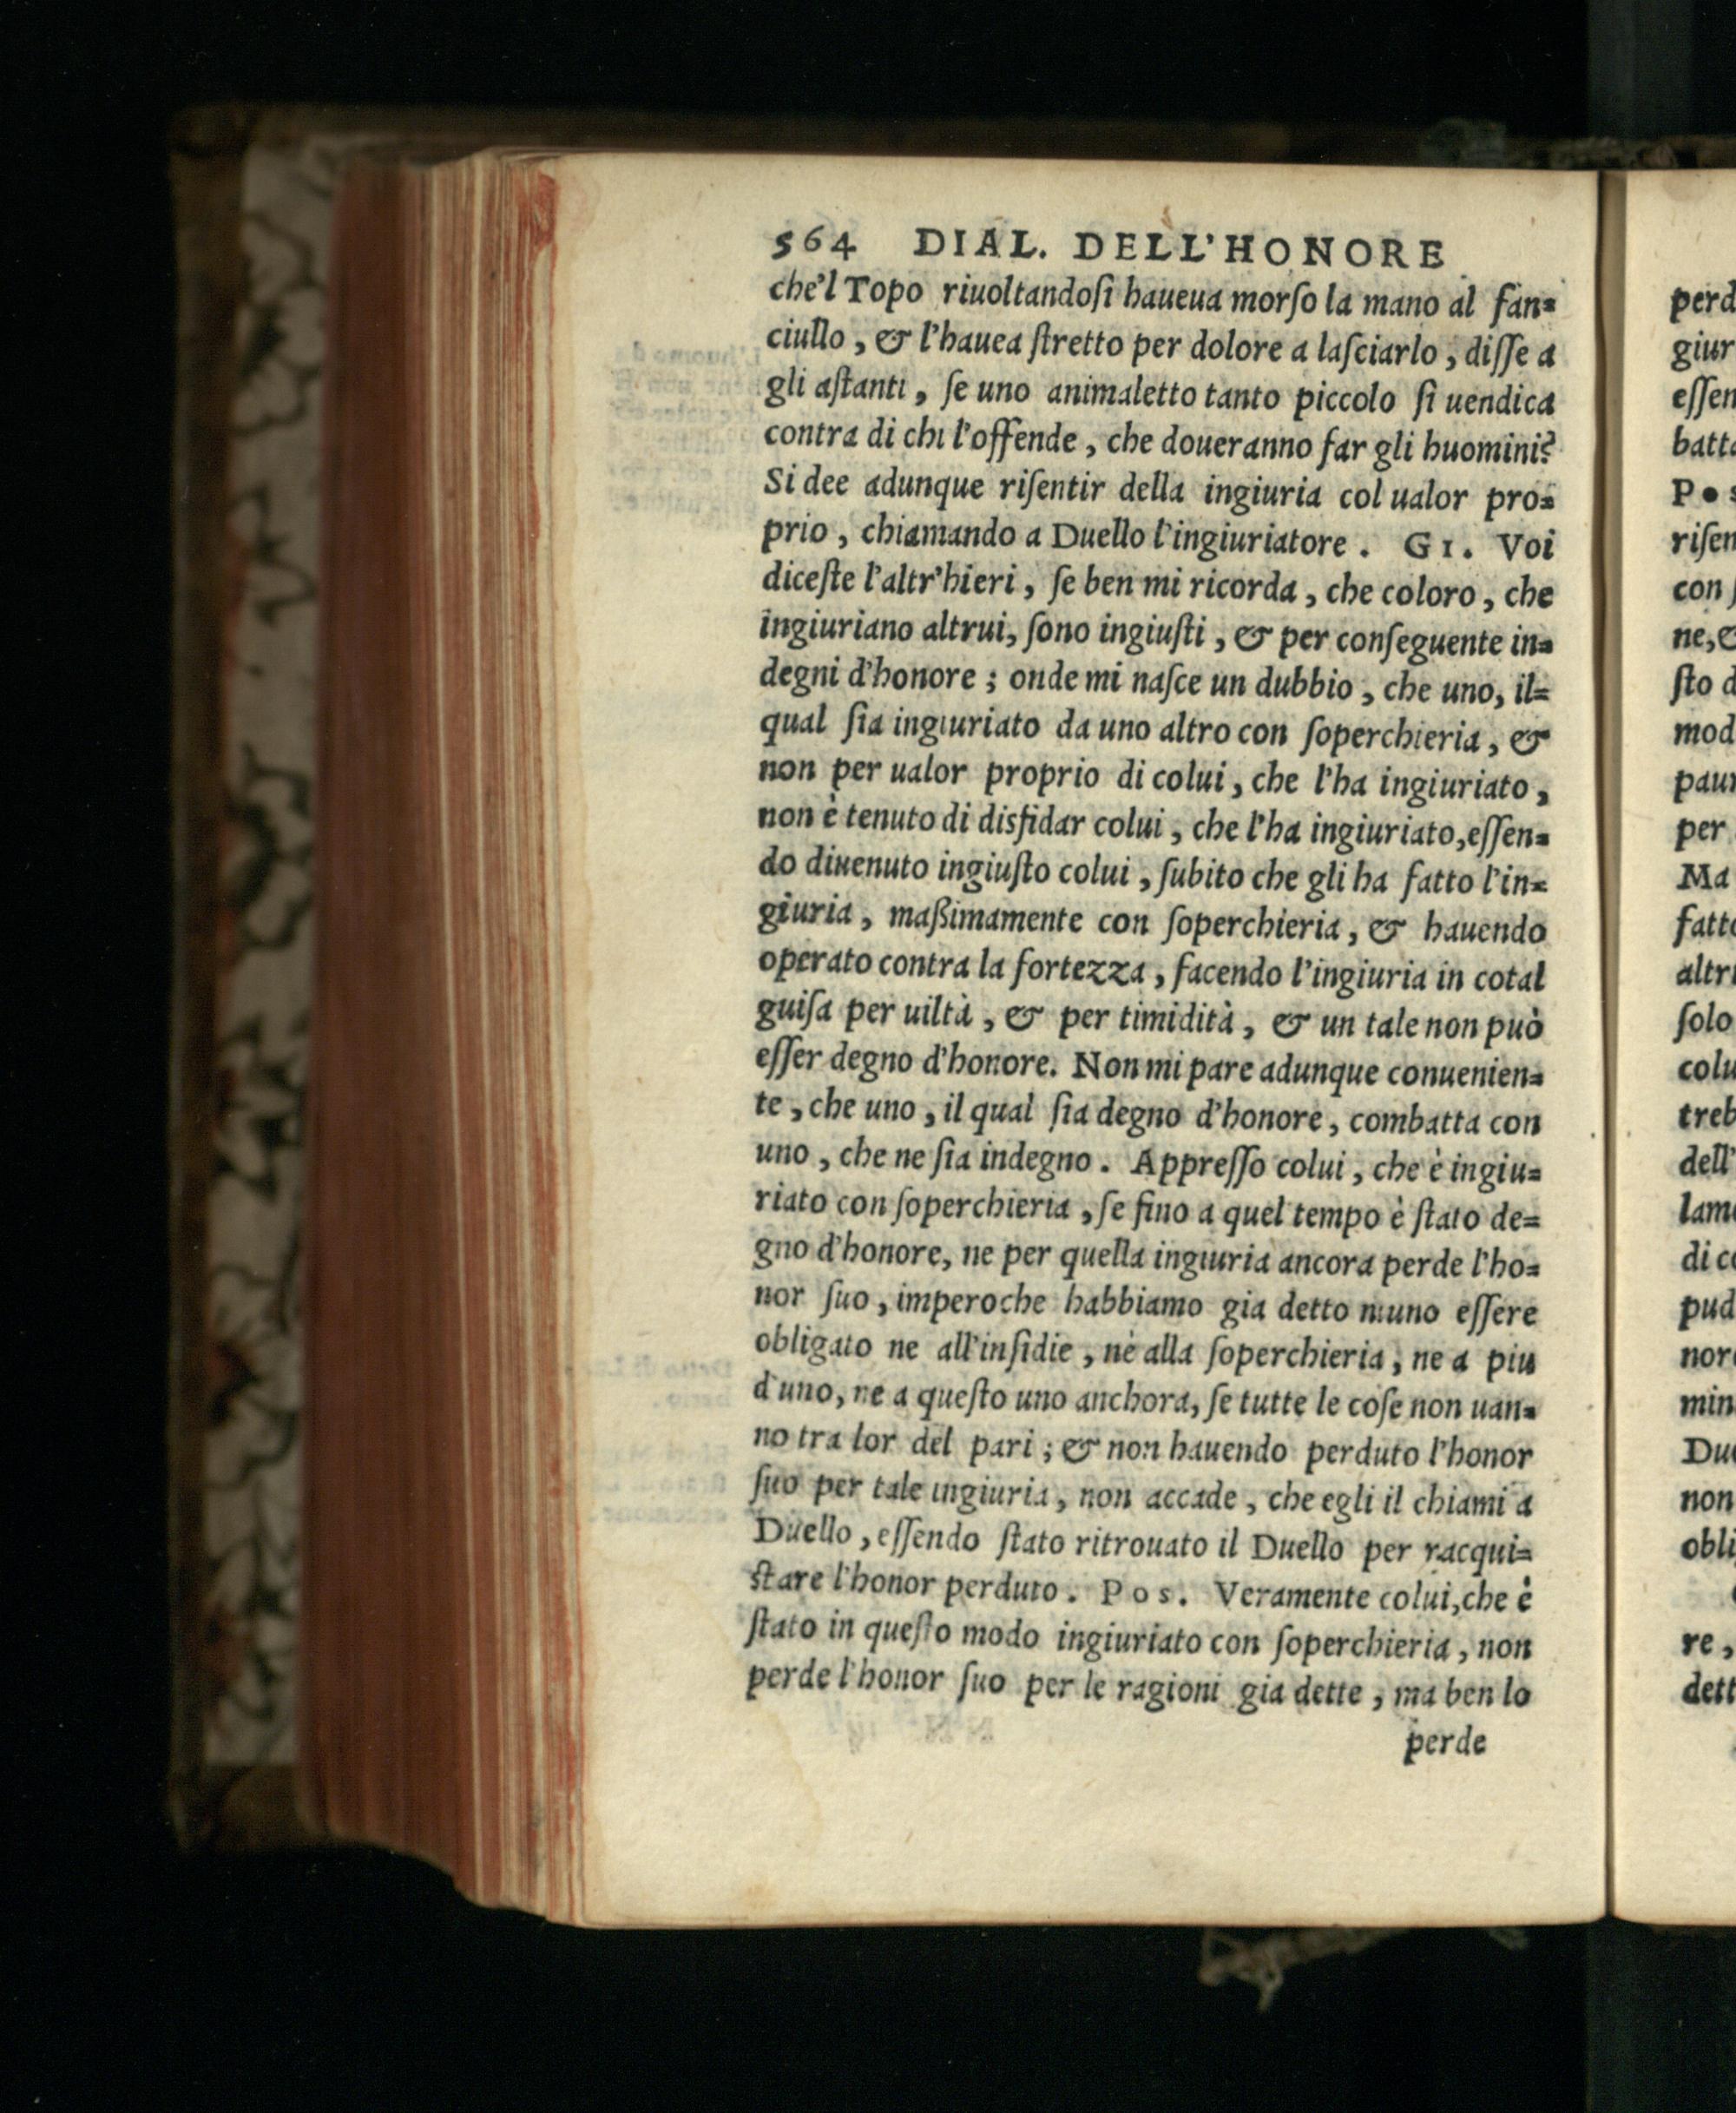 564 DIAL. DELL'HONORE
che'l Topo riuoltandoſi haueua morſo la mano al fan=
ciullo, & l'hauea ſtretto per dolore a laſciarlo, diſſe a
gli aſtanti, ſe uno animaletto tanto piccolo ſi uendica
contra di chi l'offende, che doueranno far gli huomini?
Si dee adunque riſentir della ingiuria col ualor pro=
prio, chiamando a Duello l'ingiuriatore. GI. Voi
diceſte l'altr'hieri, ſe ben mi ricorda, che coloro, che
ingiuriano altrui, ſono ingiuſti, & per conſeguente in=
degni d'honore; onde mi naſce un dubbio, che uno, il=
qual ſia ingiuriato da uno altro con ſoperchieria, &
non per ualor proprio di colui, che l'ha ingiuriato,
non è tenuto di disfidar colui, che l'ha ingiuriato,eſſen=
do diuenuto ingiuſto colui, ſubito che gli ha fatto l'in=
giuria, maßimamente con ſoperchieria, & hauendo
operato contra la fortezza, facendo l'ingiuria in cotal
guiſa per uiltà, & per timidità, & un tale non può
eſſer degno d'honore. Non mi pare adunque conuenien=
te, che uno, il qual ſia degno d'honore, combatta con
uno, che ne ſia indegno. Appreſſo colui, che è ingiu=
riato con ſoperchieria, ſe fino a quel tempo è ſtato de=
gno d'honore, ne per quella ingiuria ancora perde l'ho=
nor ſuo, imperoche habbiamo gia detto niuno eſſere
obligato ne all'inſidie, nè alla ſoperchieria, ne a piu
d'uno, ne a queſto uno anchora, ſe tutte le coſe non uan=
no tra lor del pari; & non hauendo perduto l'honor
ſuo per tale ingiuria, non accade, che egli il chiami a
Duello, eſſendo ſtato ritrouato il Duello per racqui=
ſtare l'honor perduto. Pos. Veramente colui,che è
ſtato in queſto modo ingiuriato con ſoperchieria, non
perde l'honor ſuo per le ragioni gia dette, ma ben lo
perde
perd
giur
eſſen
batta
Pos
riſen
con
ne,&
ſto d
mod
paur
per
Ma
fatto
altri
ſolo
colu
treb
dell'
lame
di co
pud
nore
min
Due
non
obli
re,
dett